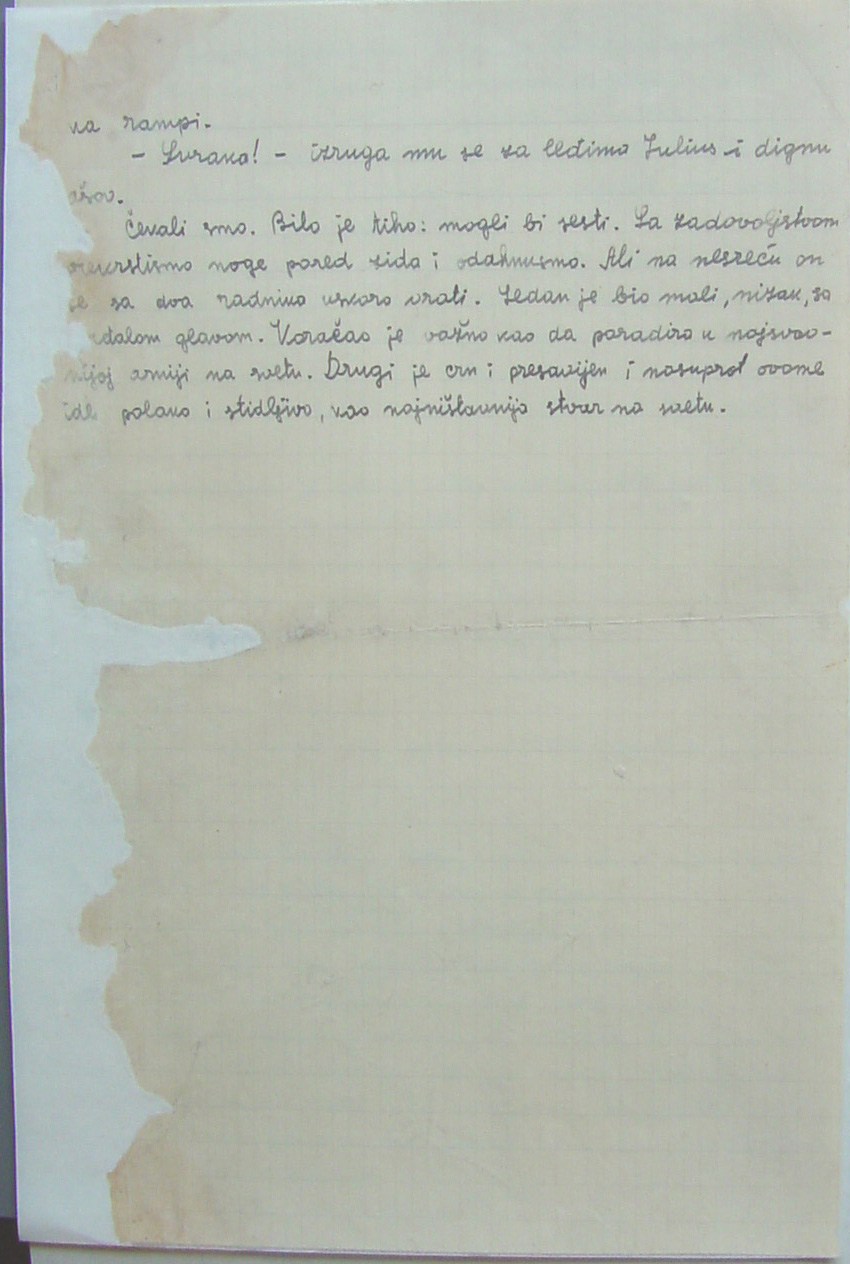 na rampi.
– Svrako! – izruga mu se za leđima Julius i dignu
ašov.
Čekali smo. Bilo je tiho: mogli bi sesti. Sa zadovoljstvom
prekrstismo noge pored zida i odahnusmo. Ali na nesreću on
se sa dva radnika uskoro vrati. Jedan je bio mali, nizak, sa
glavom. Koračao je važno kao da paradira u najsvao-
nijoj armiji na svetu. Drugi je crn i presavijen i nasuprot ovome
ide polako i stidljivo, kao najništavnija stvar na svetu.